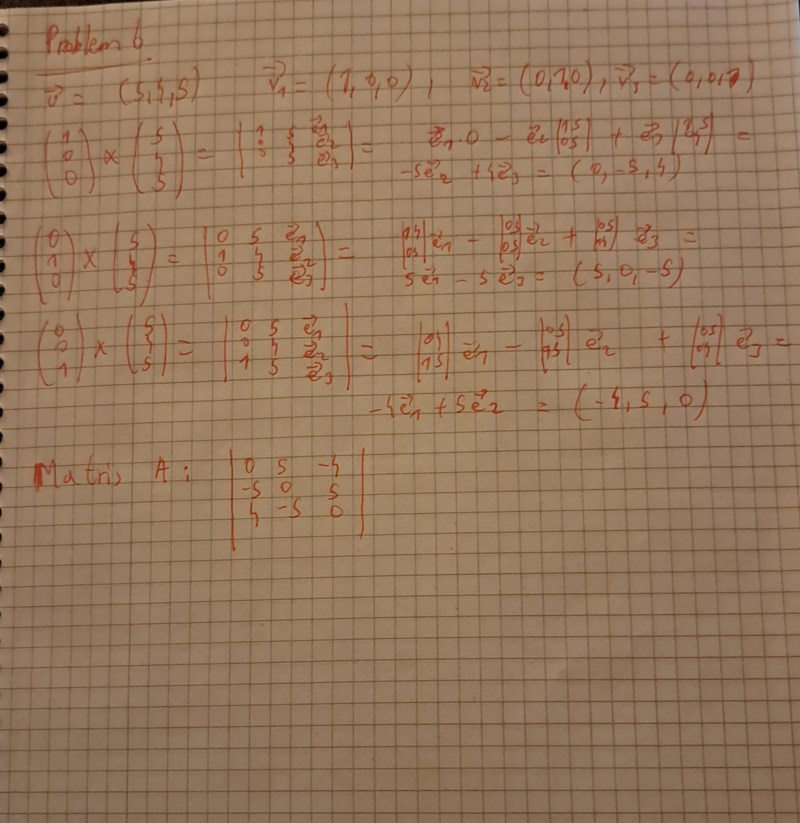 Problem 6
v⃗ = (5,4,5) v⃗₁ = (1,0,0), v⃗₂ = (0,1,0), v⃗₃ = (0,0,1)
(1 0 0) × (5 4 5) = |1 5 e⃗₁; 0 4 e⃗₂; 0 5 e⃗₃| = e⃗₁·0 − e⃗₂|1 5; 0 5| + e⃗₃|1 5; 0 4| =
-5e⃗₂ + 4e⃗₃ = (0,-5,4)
(0 1 0) × (5 4 5) = |0 5 e⃗₁; 1 4 e⃗₂; 0 5 e⃗₃| = |1 4; 0 5|e⃗₁ − |0 5; 0 5|e⃗₂ + |0 5; 1 4| e⃗₃ =
5e⃗₁ − 5e⃗₃ = (5,0,-5)
(0 0 1) × (5 4 5) = |0 5 e⃗₁; 0 4 e⃗₂; 1 5 e⃗₃| = |0 4; 1 5| e⃗₁ − |0 5; 1 5| e⃗₂ + |0 5; 0 4| e⃗₃ =
-4e⃗₁ + 5e⃗₂ = (-4,5,0)
Matris A: |0 5 -4
-5 0 5
4 -5 0|